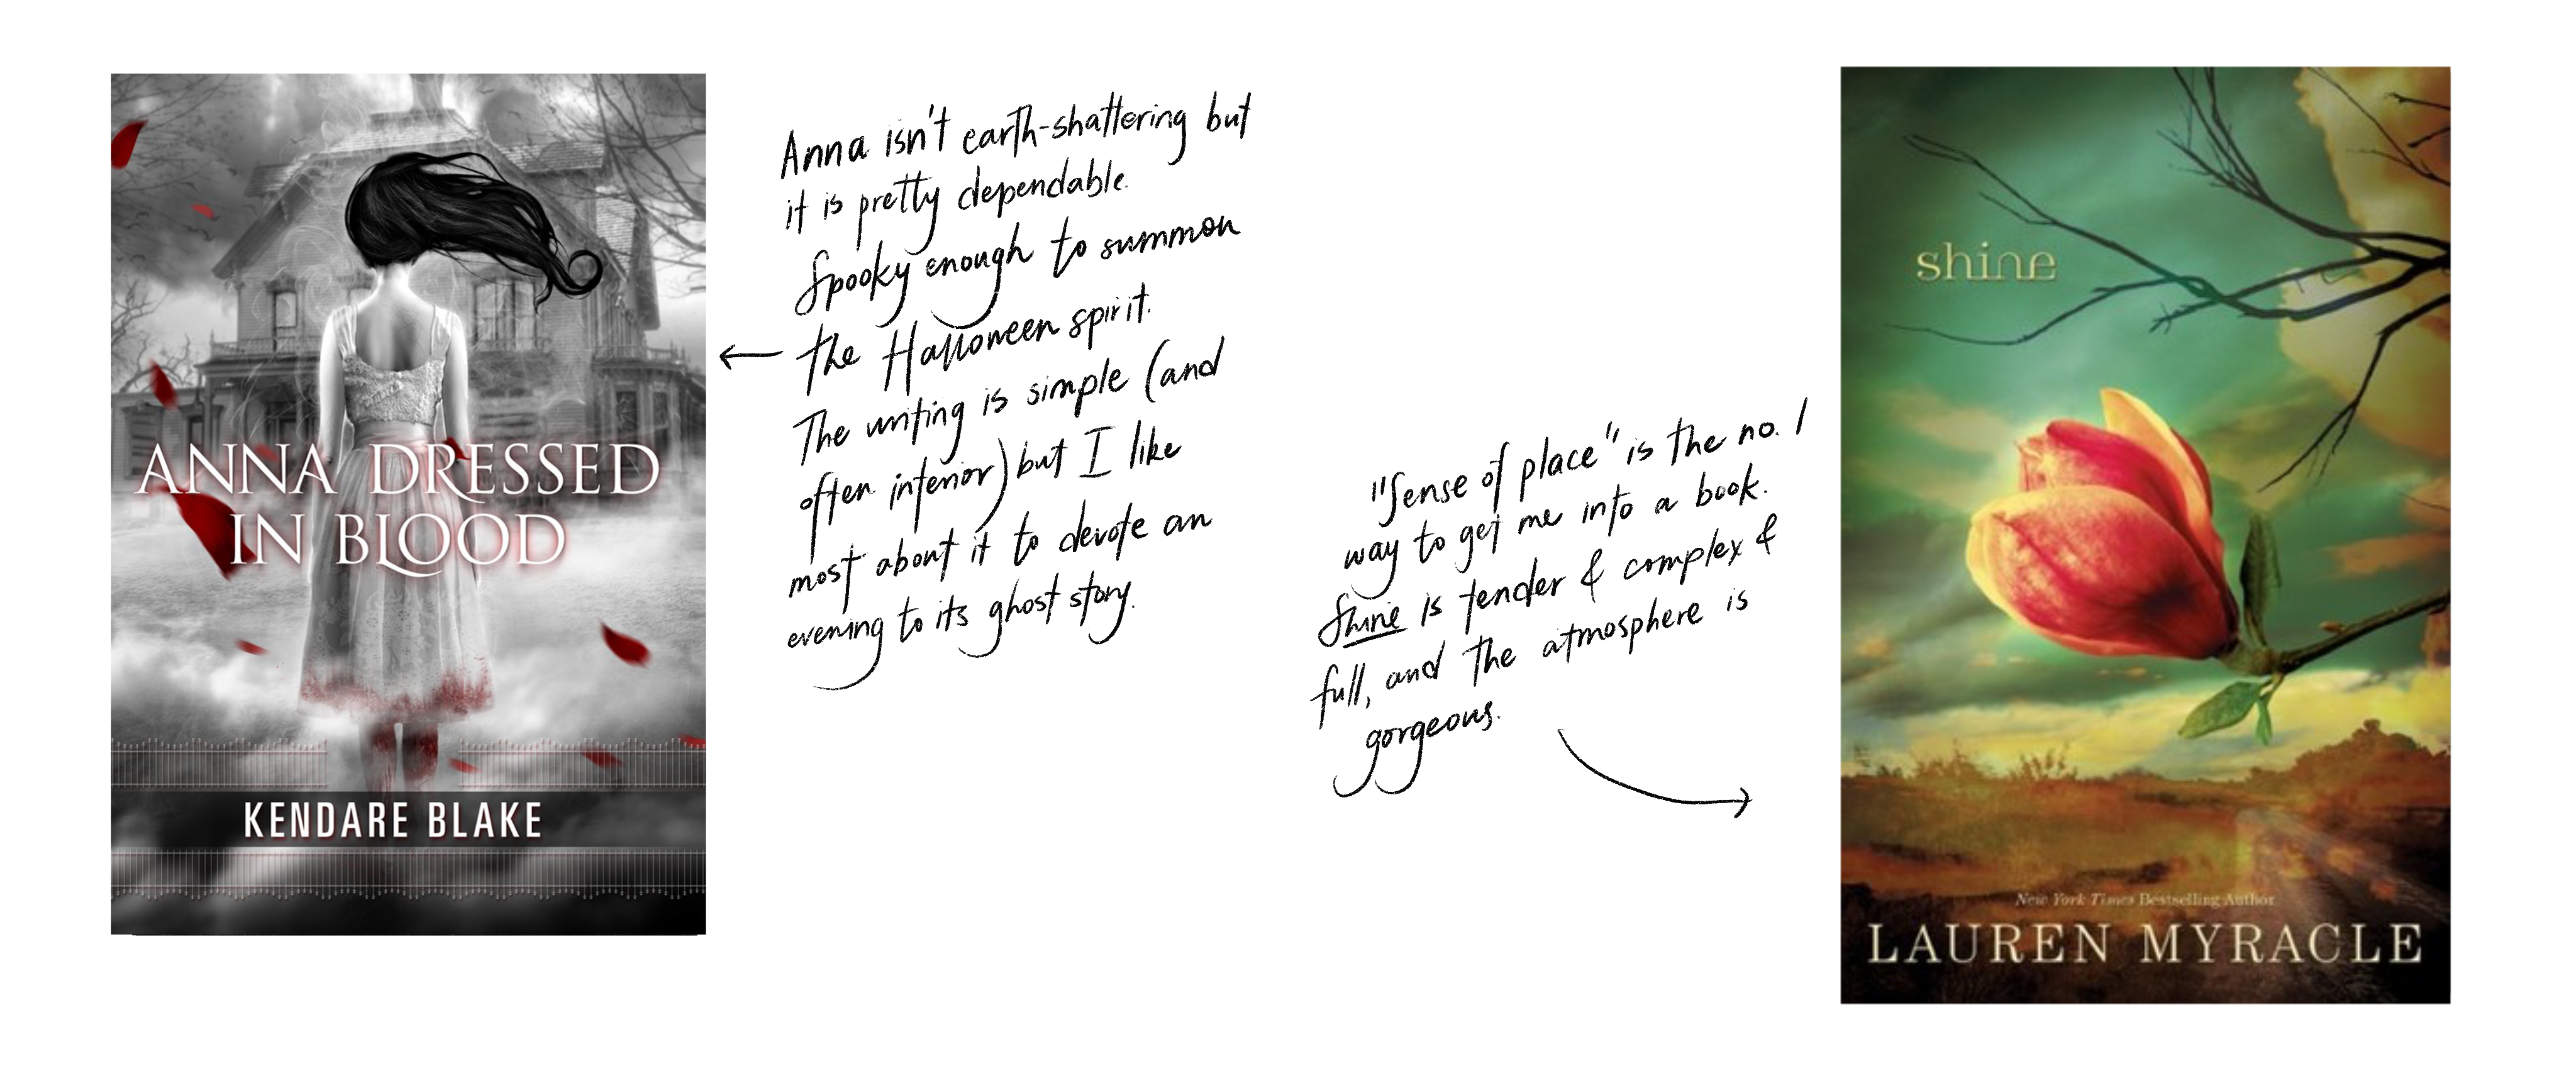 ANNA DRESSED
IN BLOOD
KENDARE BLAKE
Anna isn't earth-shattering but
it is pretty dependable.
Spooky enough to summon
the Halloween spirit.
The writing is simple (and
often interior) but I like
most about it to devote an
evening to its ghost story.
"Sense of place" is the no. 1
way to get me into a book.
Shine is tender & complex &
full, and the atmosphere is
gorgeous.
shine
New York Times Bestselling Author
LAUREN MYRACLE